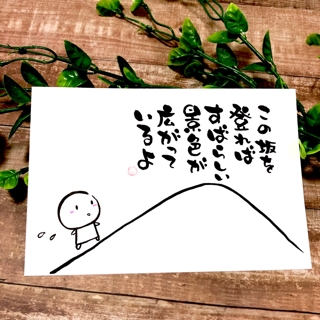 この坂を
登れば
すばらしい
景色が
広がって
いるよ